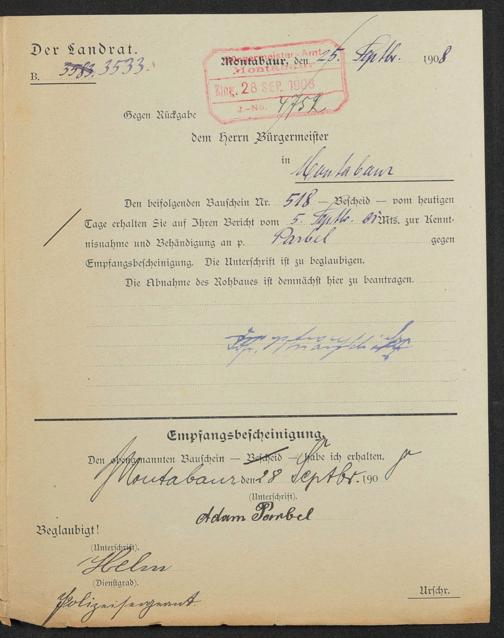 Der Landrat.
B. 3583. 3533.
Montabaur, den 25. Septbr. 1908
Bürgermeister-Amt
Montabaur
Eing. 28 SEP. 1908
J.-No. 4752
Gegen Rückgabe
dem Herrn Bürgermeister
in
Montabaur
Den beifolgenden Bauschein Nr. 518 — Bescheid — vom heutigen
Tage erhalten Sie auf Ihren Bericht vom 5. Septbr. Mts. zur Kennt-
nisnahme und Behändigung an p. Parbel gegen
Empfangsbescheinigung. Die Unterschrift ist zu beglaubigen.
Die Abnahme des Rohbaues ist demnächst hier zu beantragen.
Empfangsbescheinigung.
Den obengenannten Bauschein — Bescheid — habe ich erhalten.
Montabaur den 28 Septbr. 190
(Unterschrift).
Adam Parbel
Beglaubigt!
(Unterschrift).
Helm
(Dienstgrad).
Polizeisergeant
Urschr.